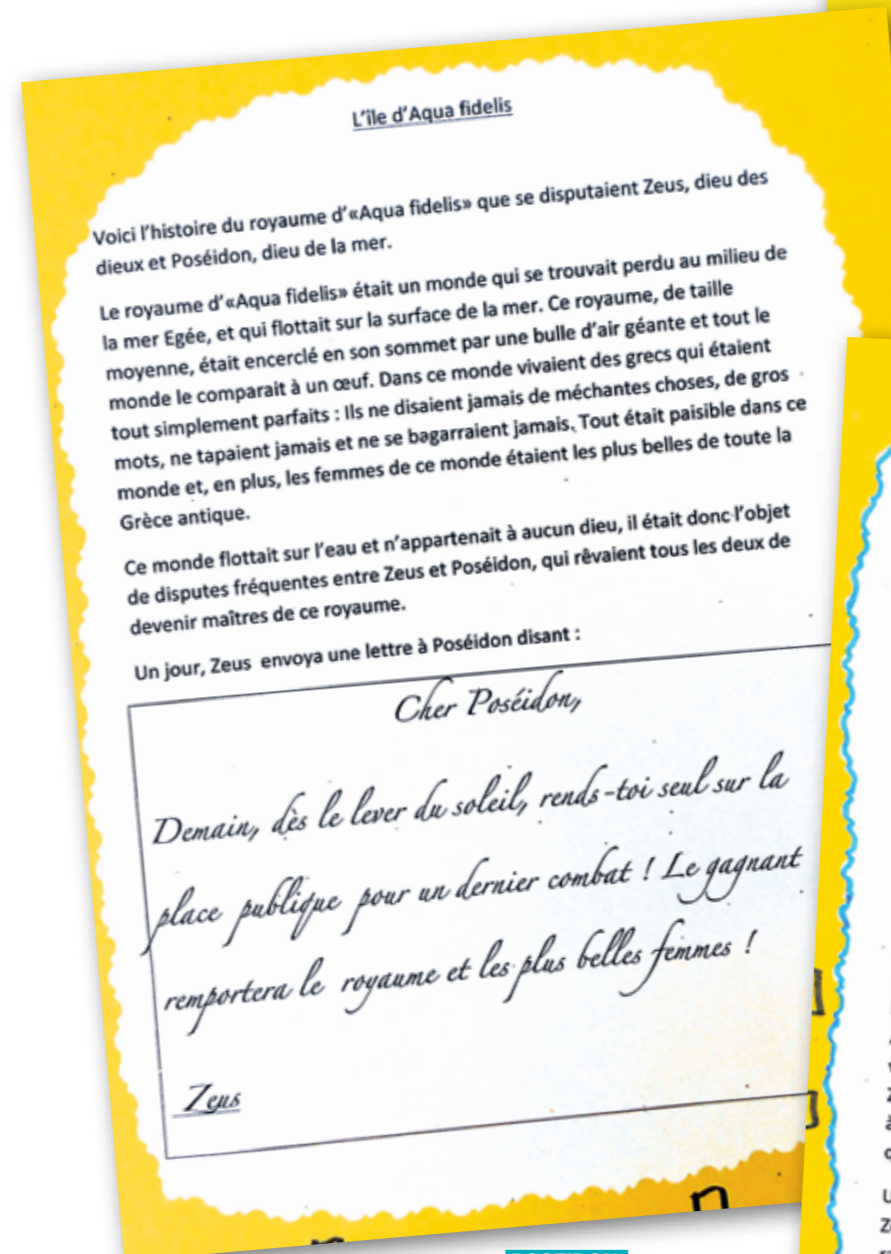 L'île d'Aqua fidelis
Voici l'histoire du royaume d'«Aqua fidelis» que se disputaient Zeus, dieu des
dieux et Poséidon, dieu de la mer.
Le royaume d'«Aqua fidelis» était un monde qui se trouvait perdu au milieu de
la mer Egée, et qui flottait sur la surface de la mer. Ce royaume, de taille
moyenne, était encerclé en son sommet par une bulle d'air géante et tout le
monde le comparait à un œuf. Dans ce monde vivaient des grecs qui étaient
tout simplement parfaits : Ils ne disaient jamais de méchantes choses, de gros
mots, ne tapaient jamais et ne se bagarraient jamais. Tout était paisible dans ce
monde et, en plus, les femmes de ce monde étaient les plus belles de toute la
Grèce antique.
Ce monde flottait sur l'eau et n'appartenait à aucun dieu, il était donc l'objet
de disputes fréquentes entre Zeus et Poséidon, qui rêvaient tous les deux de
devenir maîtres de ce royaume.
Un jour, Zeus envoya une lettre à Poséidon disant :
Cher Poséidon,
Demain, dès le lever du soleil, rends-toi seul sur la
place publique pour un dernier combat ! Le gagnant
remportera le royaume et les plus belles femmes !
Zeus